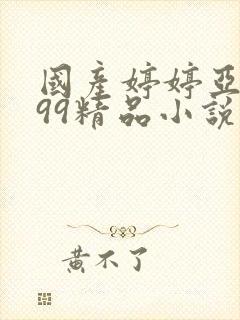 國產婷婷亞
99精品小說
黃不了